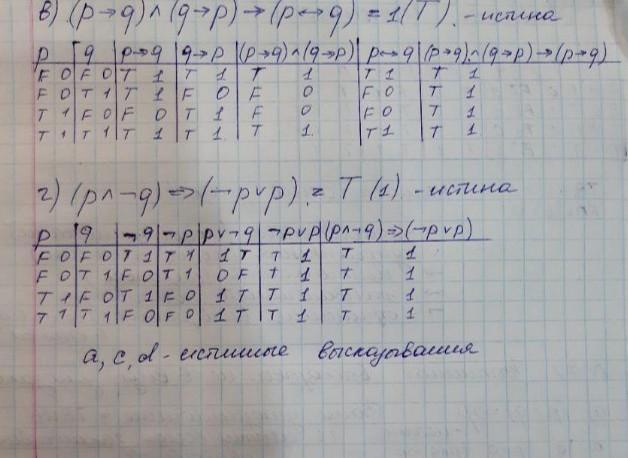 в) (p→q)∧(q→p)→(p↔q) = 1(T) - истина
p q p→q q→p (p→q)∧(q→p) p↔q (p→q)∧(q→p)→(p→q)
F 0 F 0 T 1 T 1 T 1 T 1 T 1
F 0 T 1 T 1 F 0 F 0 F 0 T 1
T 1 F 0 F 0 T 1 F 0 F 0 T 1
T 1 T 1 T 1 T 1 T 1 T 1 T 1
г) (p∧¬q)=>(¬p∨p) = T (1) - истина
p q ¬q ¬p p∨¬q ¬p∨p (p∧¬q)=>(¬p∨p)
F 0 F 0 T 1 T 1 1 T T 1 T 1
F 0 T 1 F 0 T 1 0 F T 1 T 1
T 1 F 0 T 1 F 0 1 T T 1 T 1
T 1 T 1 F 0 F 0 1 T T 1 T 1
a, c, d - истинные высказывания